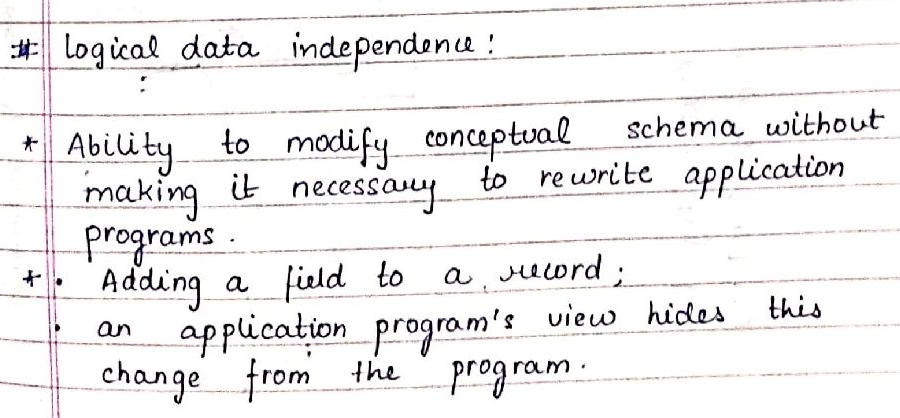 # logical data independence :
:
* Ability to modify conceptual schema without
making it necessary to rewrite application
programs .
* • Adding a field to a record ;
• an application program's view hides this
change from the program .